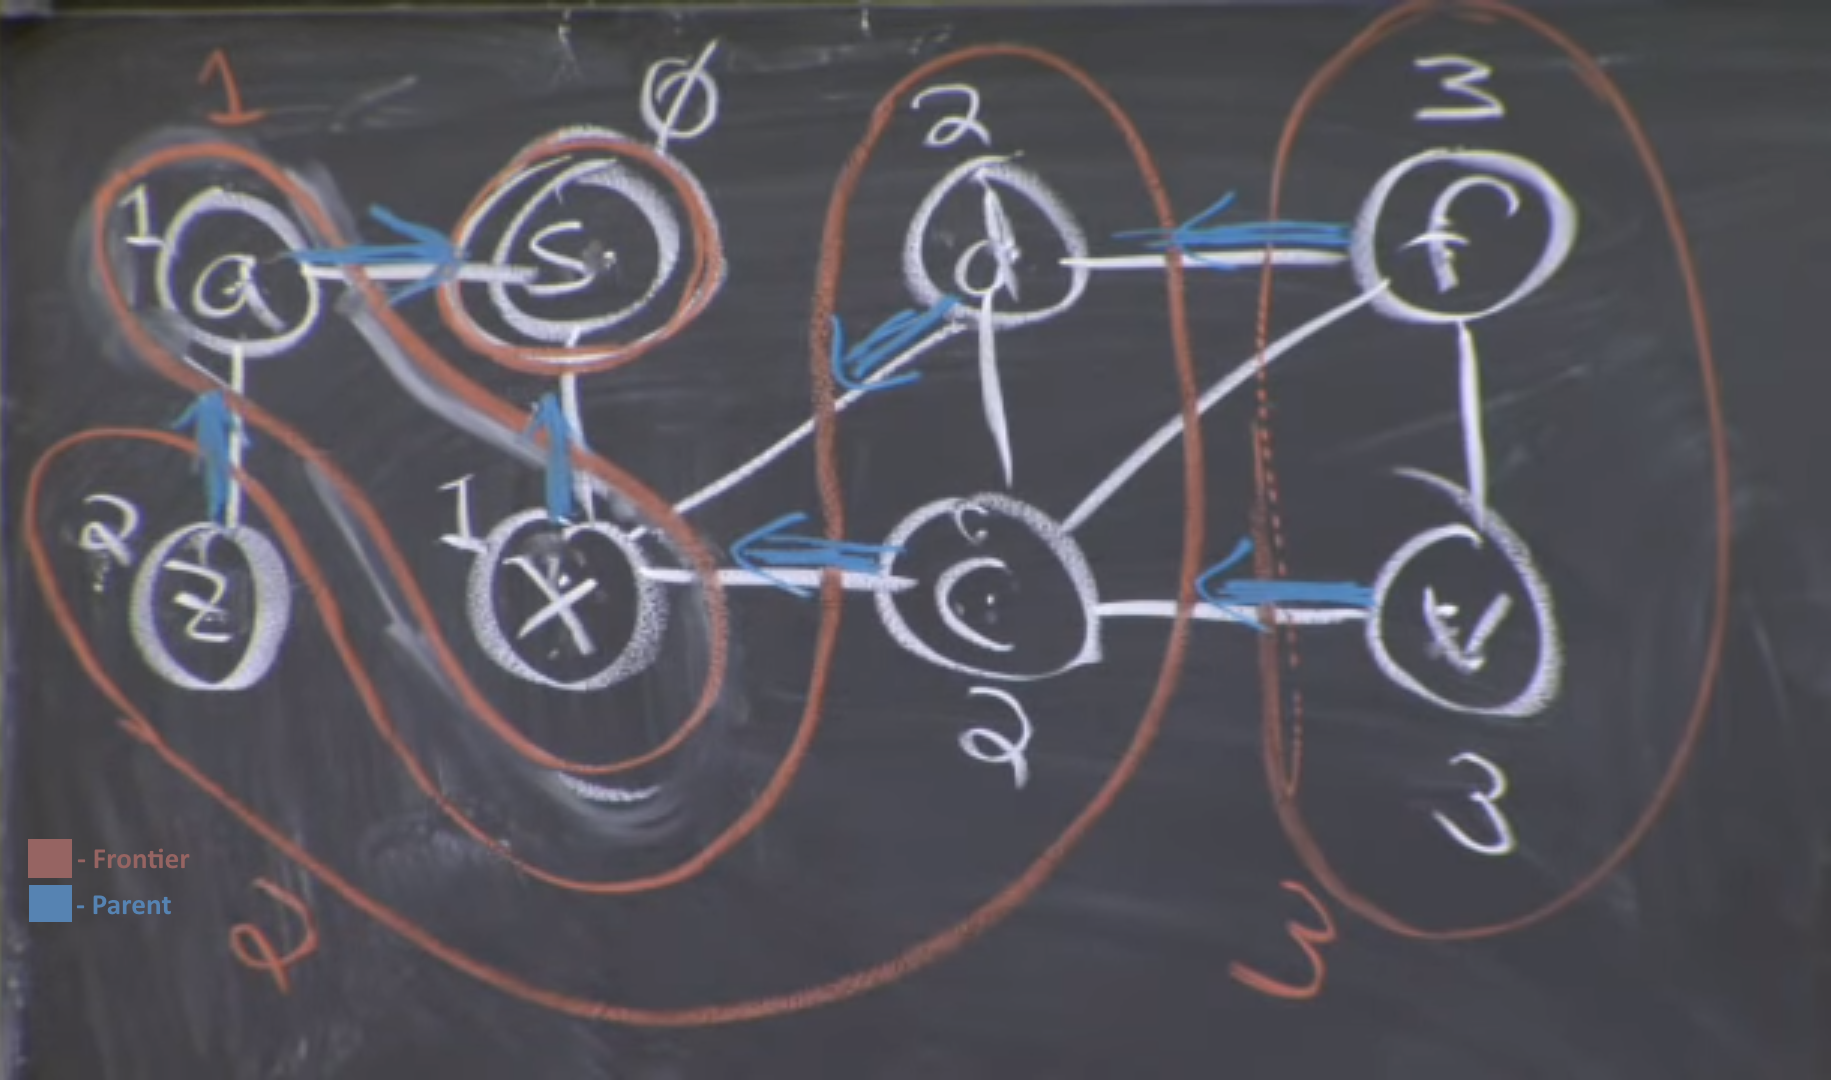 1
Ø
2
3
1
a
s
d
f
2
z
1
x
c
v
2
3
- Frontier
- Parent
2
3